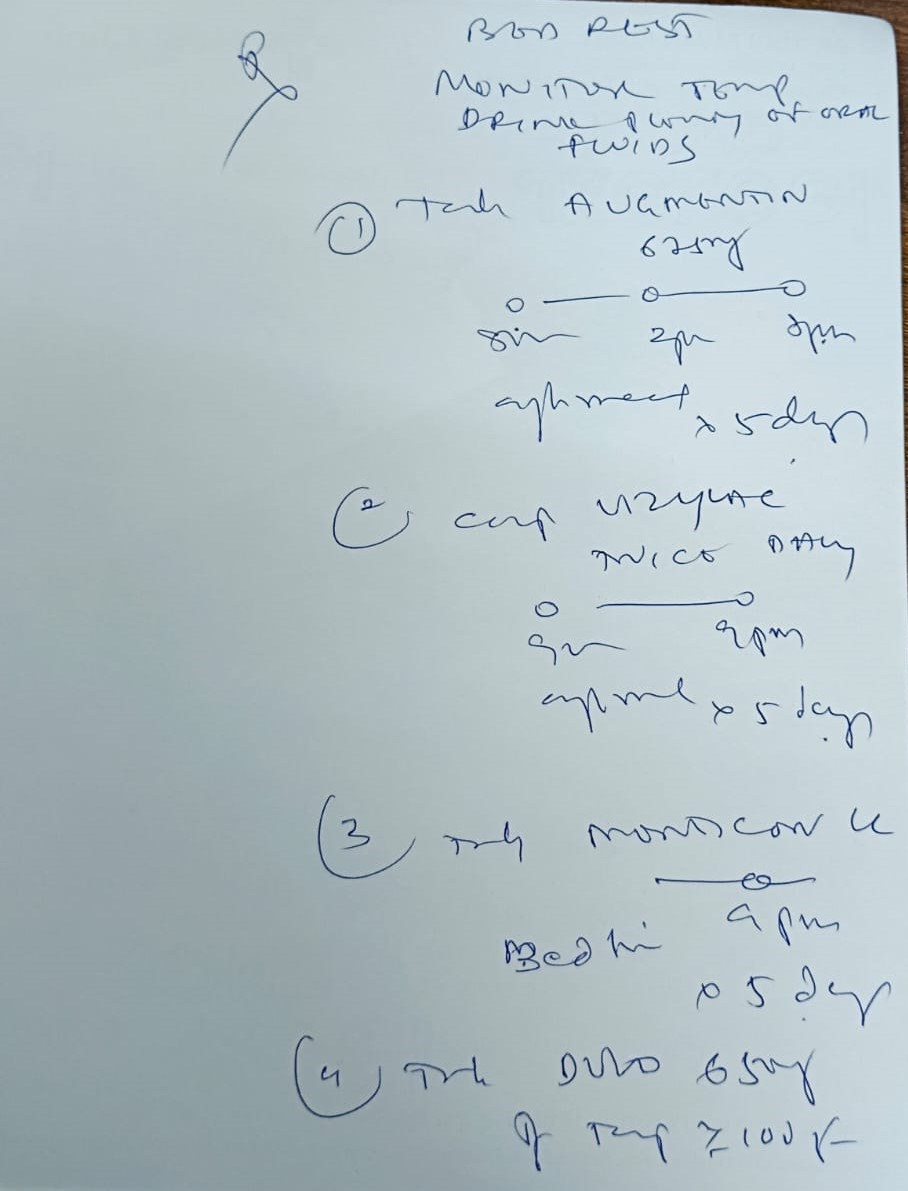 Rx
BED REST
MONITOR TEMP
DRINK PLENTY OF ORAL
FLUIDS
① Tab AUGMENTIN
625mg
o — o — o
8am 2pm 8pm
after meal x 5 days
② cap VIZYLAC
TWICE DAILY
o — o
9am 9pm
after meal x 5 days
③ Tab MONTICOPE
— o —
9pm
Bedtime
x 5 days
④ Tab DOLO 650mg
If Temp ≥ 100 F